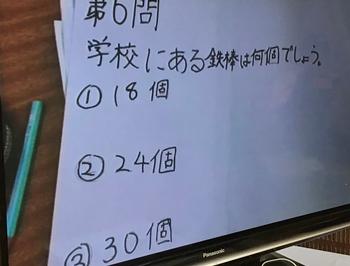 第6問
学校にある鉄棒は何個でしょう。
① 18個
② 24個
③ 30個
Panasonic